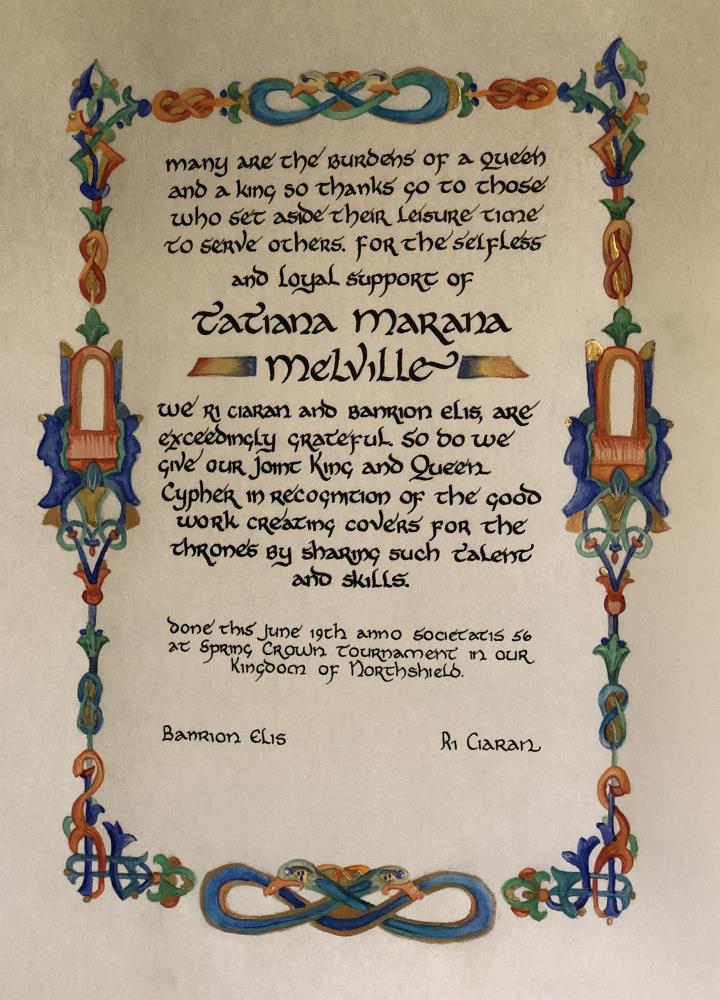 many are the burdens of a Queen
and a king so thanks go to those
who set aside their leisure time
to serve others. For the selfless
and loyal support of
Tatiana Marana
Melville
We Ri Ciaran and Banrion Elis, are
exceedingly grateful. So do we
give our joint King and Queen
Cypher in recognition of the good
work creating covers for the
thrones by sharing such talent
and skills.
Done this June 19th anno societatis 56
at Spring Crown Tournament in our
Kingdom of Northshield.
Banrion Elis
Ri Ciaran